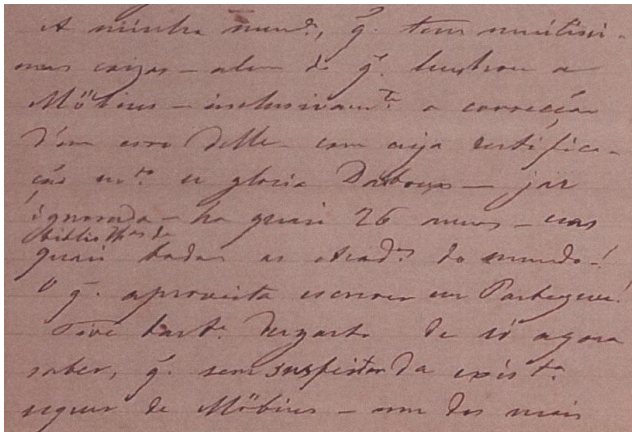 A minha mem.ª, q̃. tem muitissi-
mas coizas – alem do q̃. lembrou a
Möbius – inclusivam.te a correcção
d'um erro delle – com cuja rectifica-
ção m.to se gloría Darboux – jaz
ignorada – ha quasi 26 annos – nas
bibliothas de
quasi todas as Acad.as do mundo –!
O q̃. aproveita escrever em Portuguez!
Tive hart.º desgosto de só agora
saber, q̃. sem suspeitar da exist.ª
sequer de Möbius – um dos mais